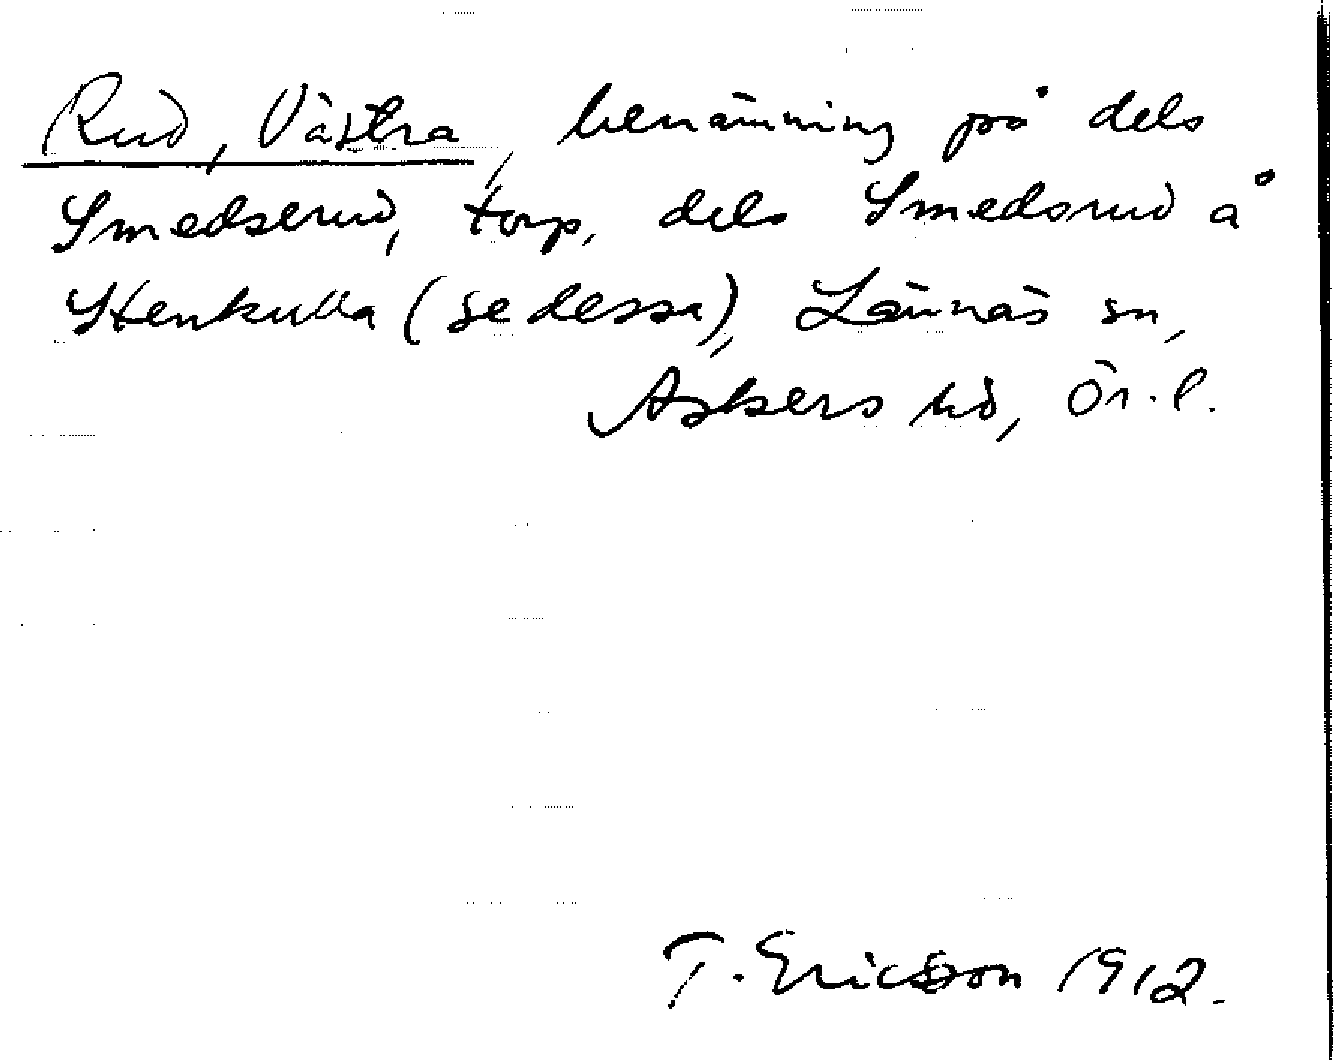 Rud, Västra, benämning på dels
Smedserud, torp, dels Smedsrud å
Stenkulla (se dessa), Lännäs sn,
Askers hd, Ör. l.
T. Ericsson 1912.